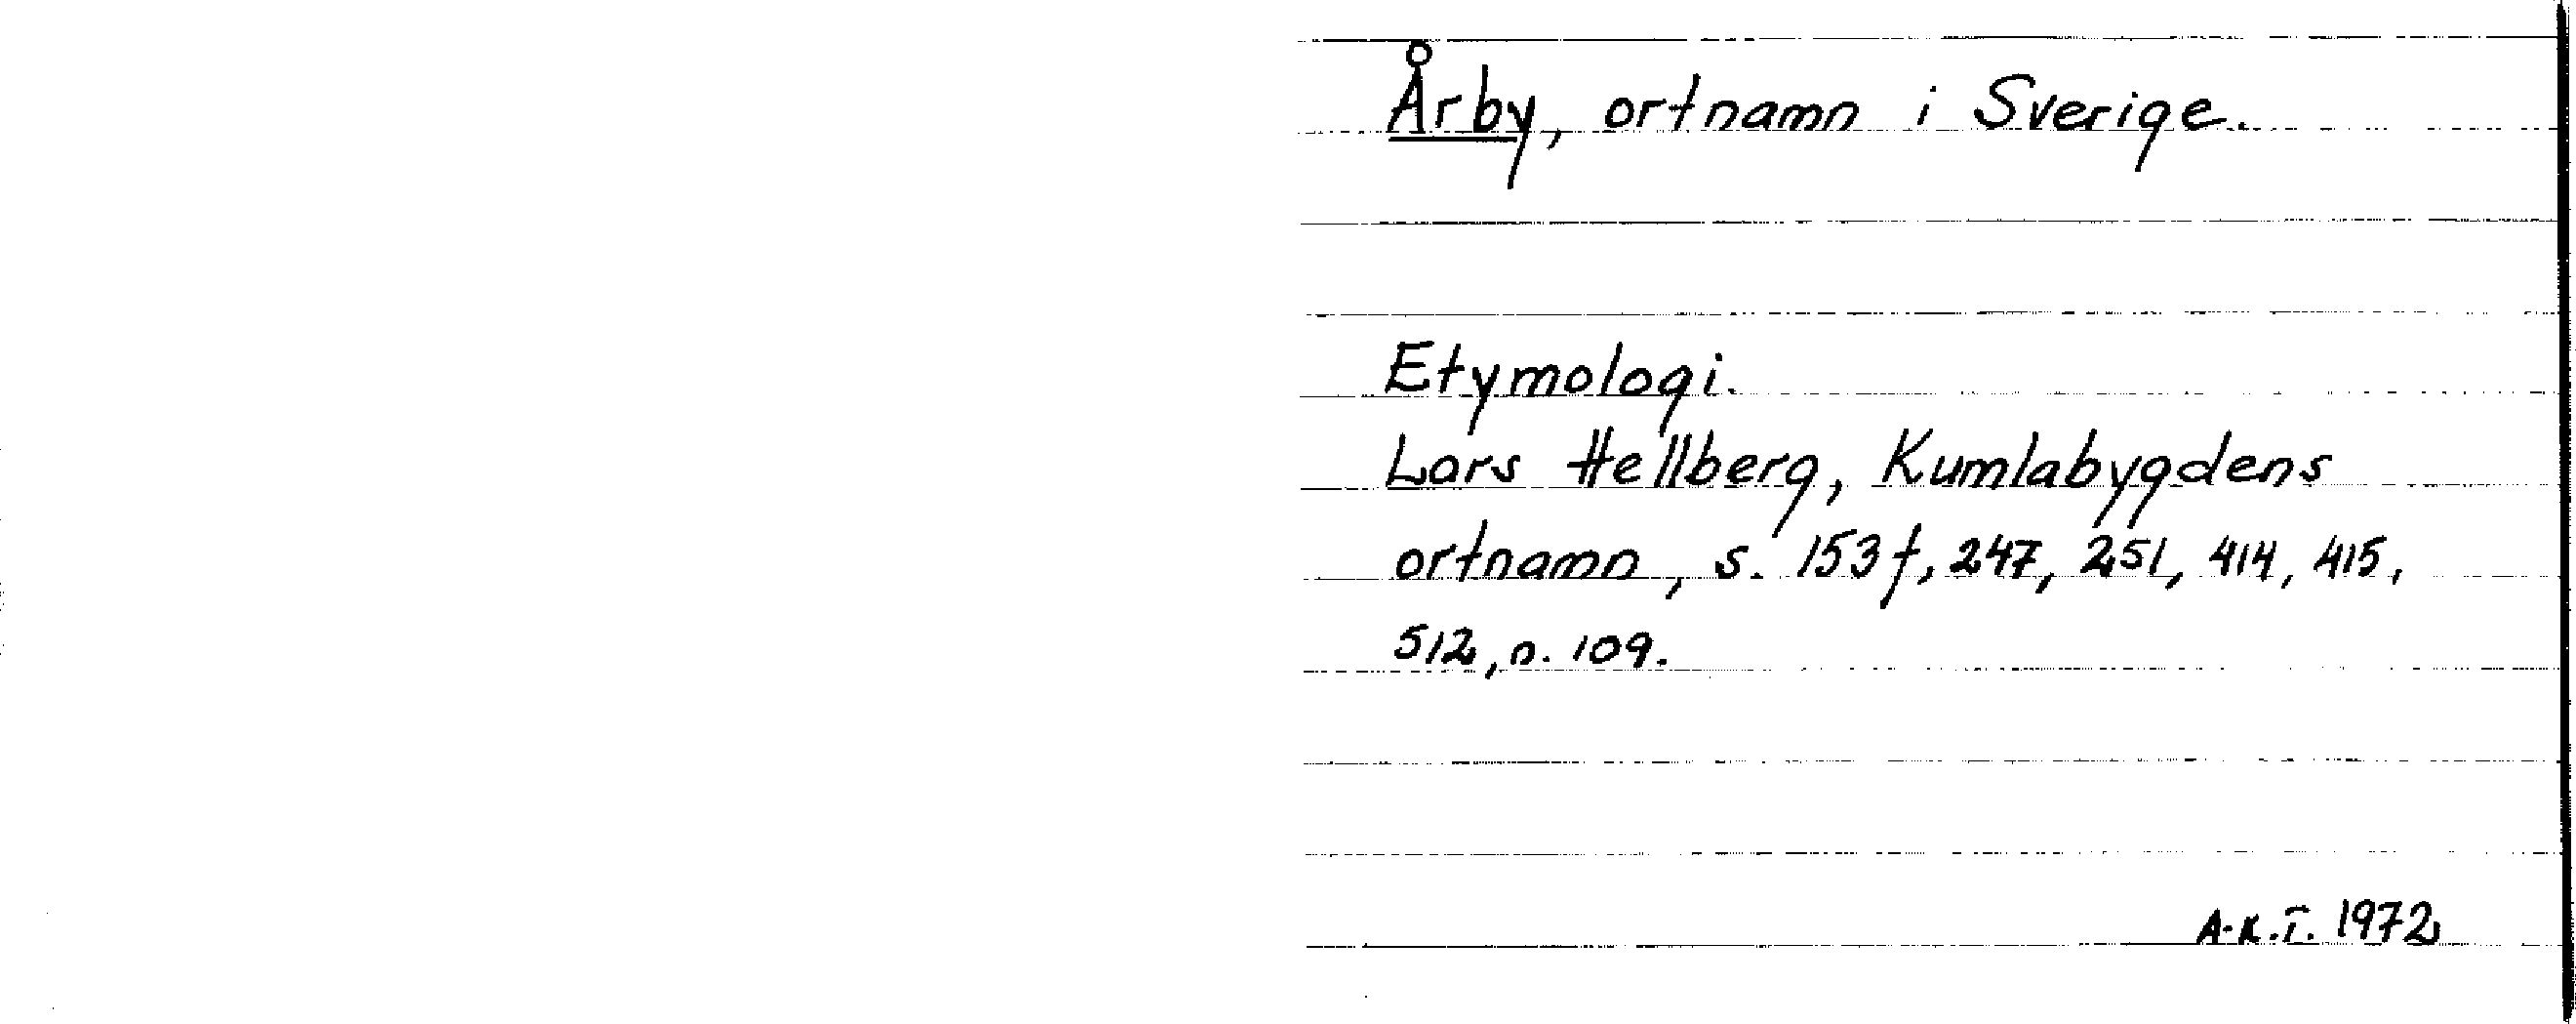 Årby, ortnamn i Sverige.
Etymologi.
Lars Hellberg, Kumlabygdens
ortnamn, s. 153f, 247, 251, 414, 415,
512, n. 109.
A-K.T. 1972